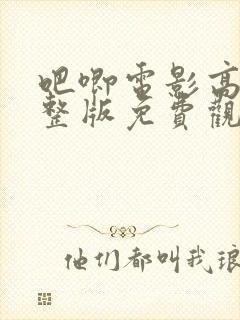 吧唧電影高
整版免費觀
他们都叫我琅